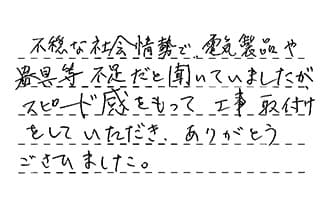 不穏な社会情勢で、電気製品や
器具等 不足だと聞いていましたが、
スピード感をもって 工事 取付け
をしていただき、ありがとう
ございました。